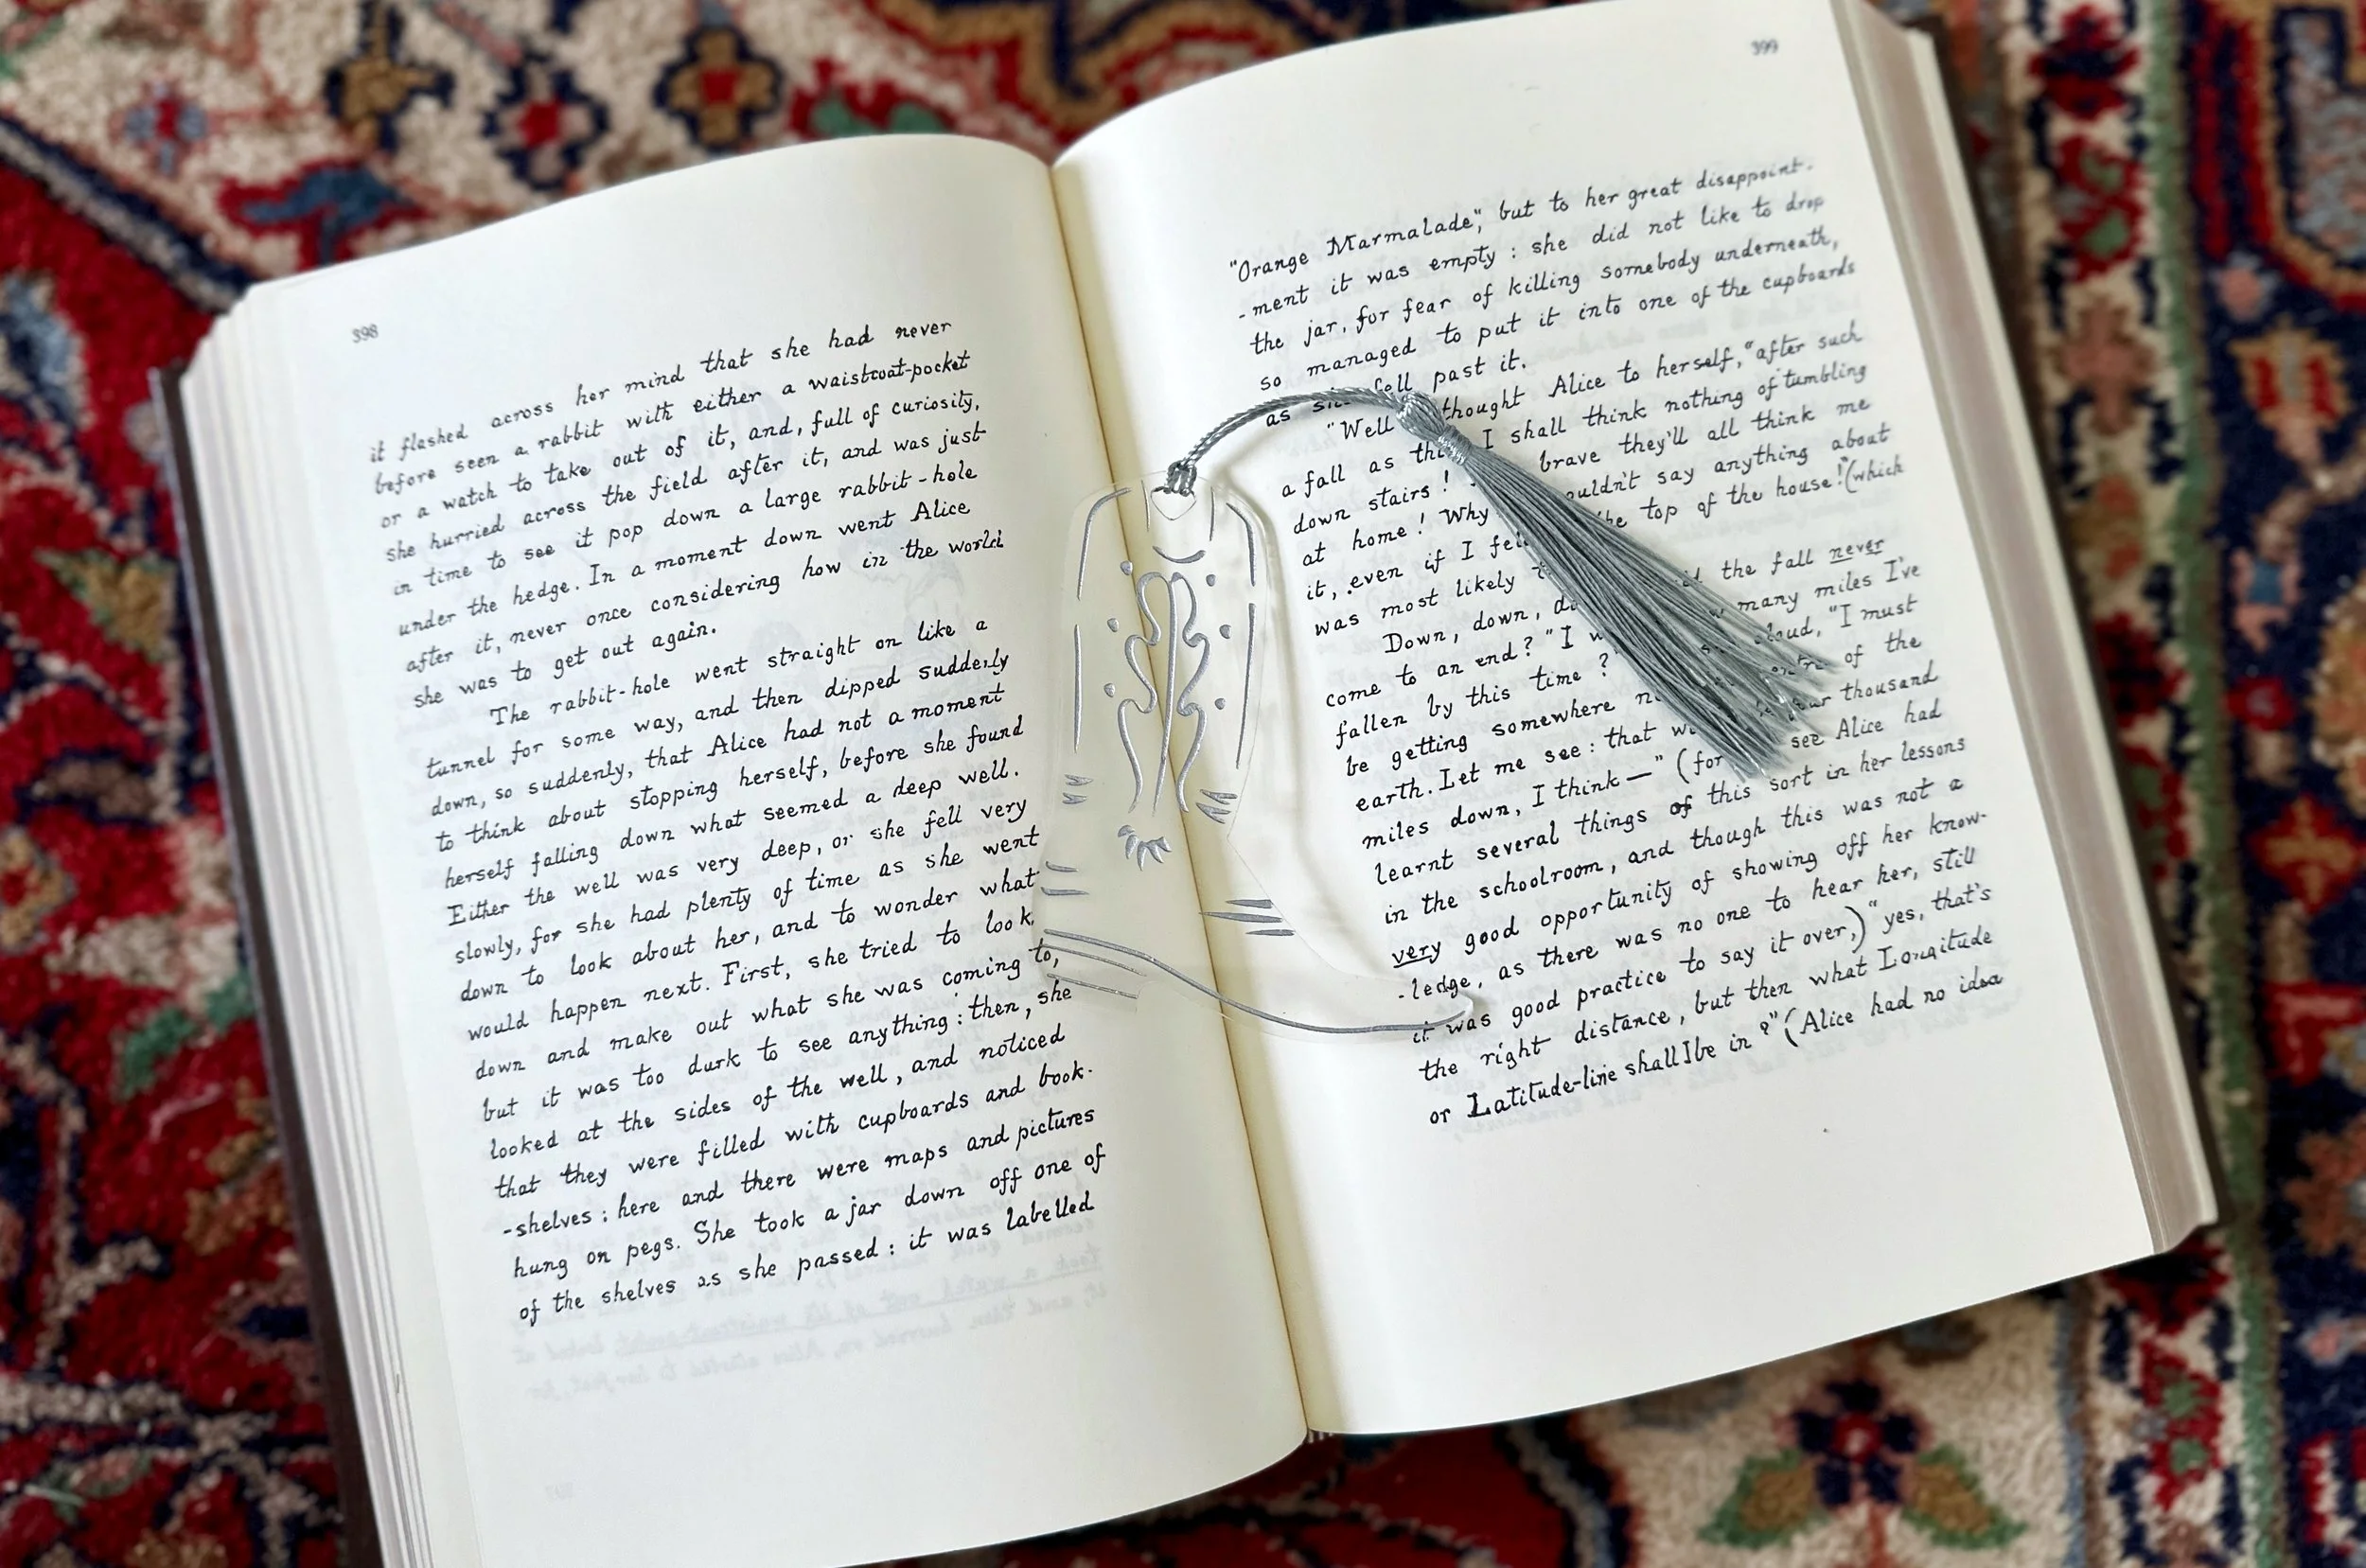 398
it flashed across her mind that she had never
before seen a rabbit with either a waistcoat-pocket
or a watch to take out of it, and, full of curiosity,
she hurried across the field after it, and was just
in time to see it pop down a large rabbit-hole
under the hedge. In a moment down went Alice
after it, never once considering how in the world
she was to get out again.
The rabbit-hole went straight on like a
tunnel for some way, and then dipped suddenly
down, so suddenly, that Alice had not a moment
to think about stopping herself, before she found
herself falling down what seemed a deep well.
Either the well was very deep, or she fell very
slowly, for she had plenty of time as she went
down to look about her, and to wonder what
would happen next. First, she tried to look
down and make out what she was coming to,
but it was too dark to see anything: then, she
looked at the sides of the well, and noticed
that they were filled with cupboards and book-
-shelves: here and there were maps and pictures
hung on pegs. She took a jar down off one of
of the shelves as she passed: it was labelled
399
"Orange Marmalade", but to her great disappoint-
-ment it was empty: she did not like to drop
the jar, for fear of killing somebody underneath,
so managed to put it into one of the cupboards
as fell past it.
"Well thought Alice to herself, "after such
a fall as I shall think nothing of tumbling
down stairs! brave they'll all think me
at home! Why say anything about
it, even if I the top of the house!" (which
was most likely
Down, down, the fall never
come to an end? "I many miles I've
fallen by this time?" aloud, "I must
be getting somewhere of the
earth. Let me see: that thousand
miles down, I think—" (for see Alice had
learnt several things of this sort in her lessons
in the schoolroom, and though this was not a
very good opportunity of showing off her know-
-ledge, as there was no one to hear her, still
it was good practice to say it over,) "yes, that's
the right distance, but then what Longitude
or Latitude-line shall I be in?" (Alice had no idea